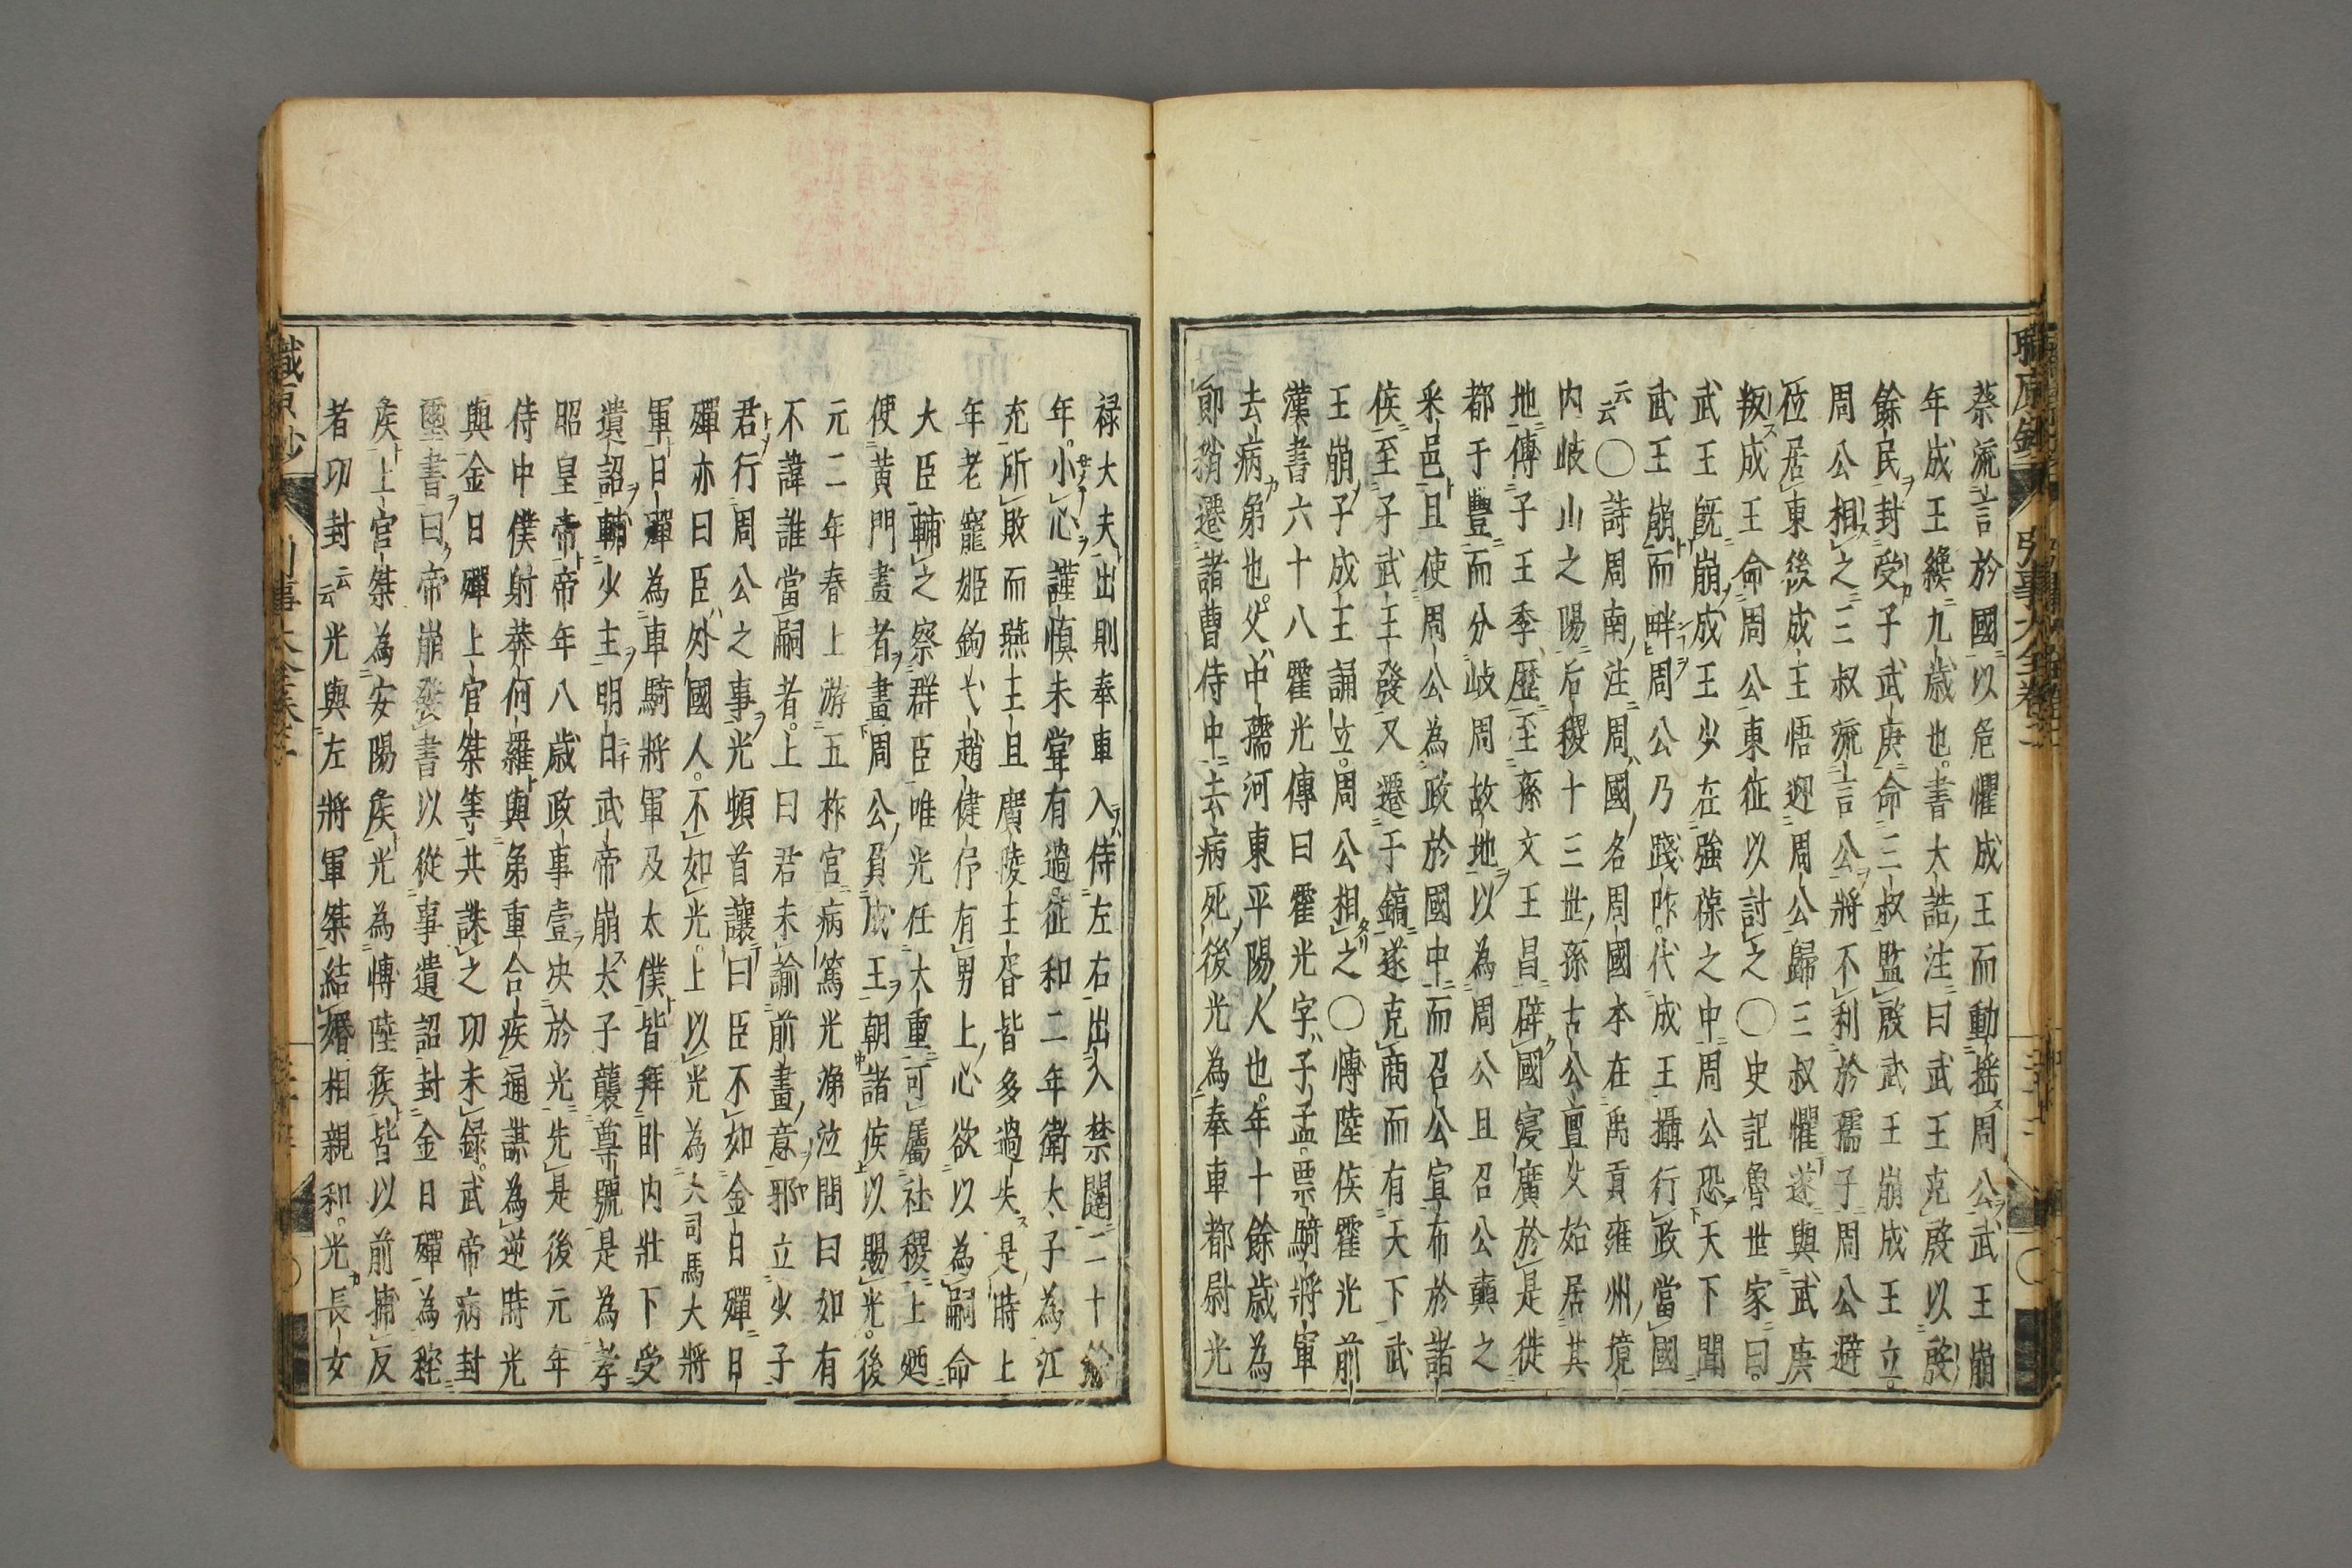 蔡流言於國以危懼成王而動揺周公武王崩
年成王纔九歳也書大誥注曰武王克殷以殷
餘民封受子武庚命三叔監殷武王崩成王立
周公相之三叔流言公將不利於孺子周公避
位居東後成王悟迎周公歸三叔懼遂與武庚
叛成王命周公東征以討之〇史記魯世家曰
武王既崩成王少在強葆之中周公恐天下聞
武王崩而畔周公乃踐阼代成王攝行政當國
云云〇詩周南注周國名周國本在禹貢雍州境
内岐山之陽后稷十三世孫古公亶父始居其
地傳子王季歴至孫文王昌辟國寖廣於是徙
都于豐而分岐周故地以為周公旦召公奭之
采邑且使周公為政於國中而召公宣布於諸
侯至子武王發又遷于鎬遂克商而有天下武
王崩子成王誦立周公相之〇博陸侯霍光前
漢書六十八霍光傳曰霍光字子孟票騎將軍
去病弟也父中孺河東平陽人也年十餘歳為
郎稍遷諸曹侍中去病死後光為奉車都尉光
禄大夫出則奉車入侍左右出入禁闥二十餘
年小心謹慎未甞有過征和二年衛太子為江
充所敗而燕王旦廣陵王胥皆多過失是時上
年老寵姬鉤弋趙倢伃有男上心欲以為嗣命
大臣輔之察群臣唯光任大重可屬社稷上廼
使黄門畫者畫周公負成王朝諸侯以賜光後
元二年春上游五柞宮病篤光涕泣問曰如有
不諱誰當嗣者上曰君未諭前畫意邪立少子
君行周公之事光頓首讓曰臣不如金日磾日
磾亦曰臣外國人不如光上以光為大司馬大將
軍日磾為車騎將軍及太僕皆拜卧内壯下受
遺詔輔少主明日武帝崩太子襲尊號是為孝
昭皇帝帝年八歳政事壹决於光先是後元年
侍中僕射莽何羅與弟重合疾通謀為逆時光
與金日磾上官桀等共誅之功未録武帝病封
璽書曰帝崩發書以從事遺詔封金日磾為秺
矦上官桀為安陽矦光為博陸矦皆以前捕反
者功封云云光與左將軍桀結婚相親和光長女